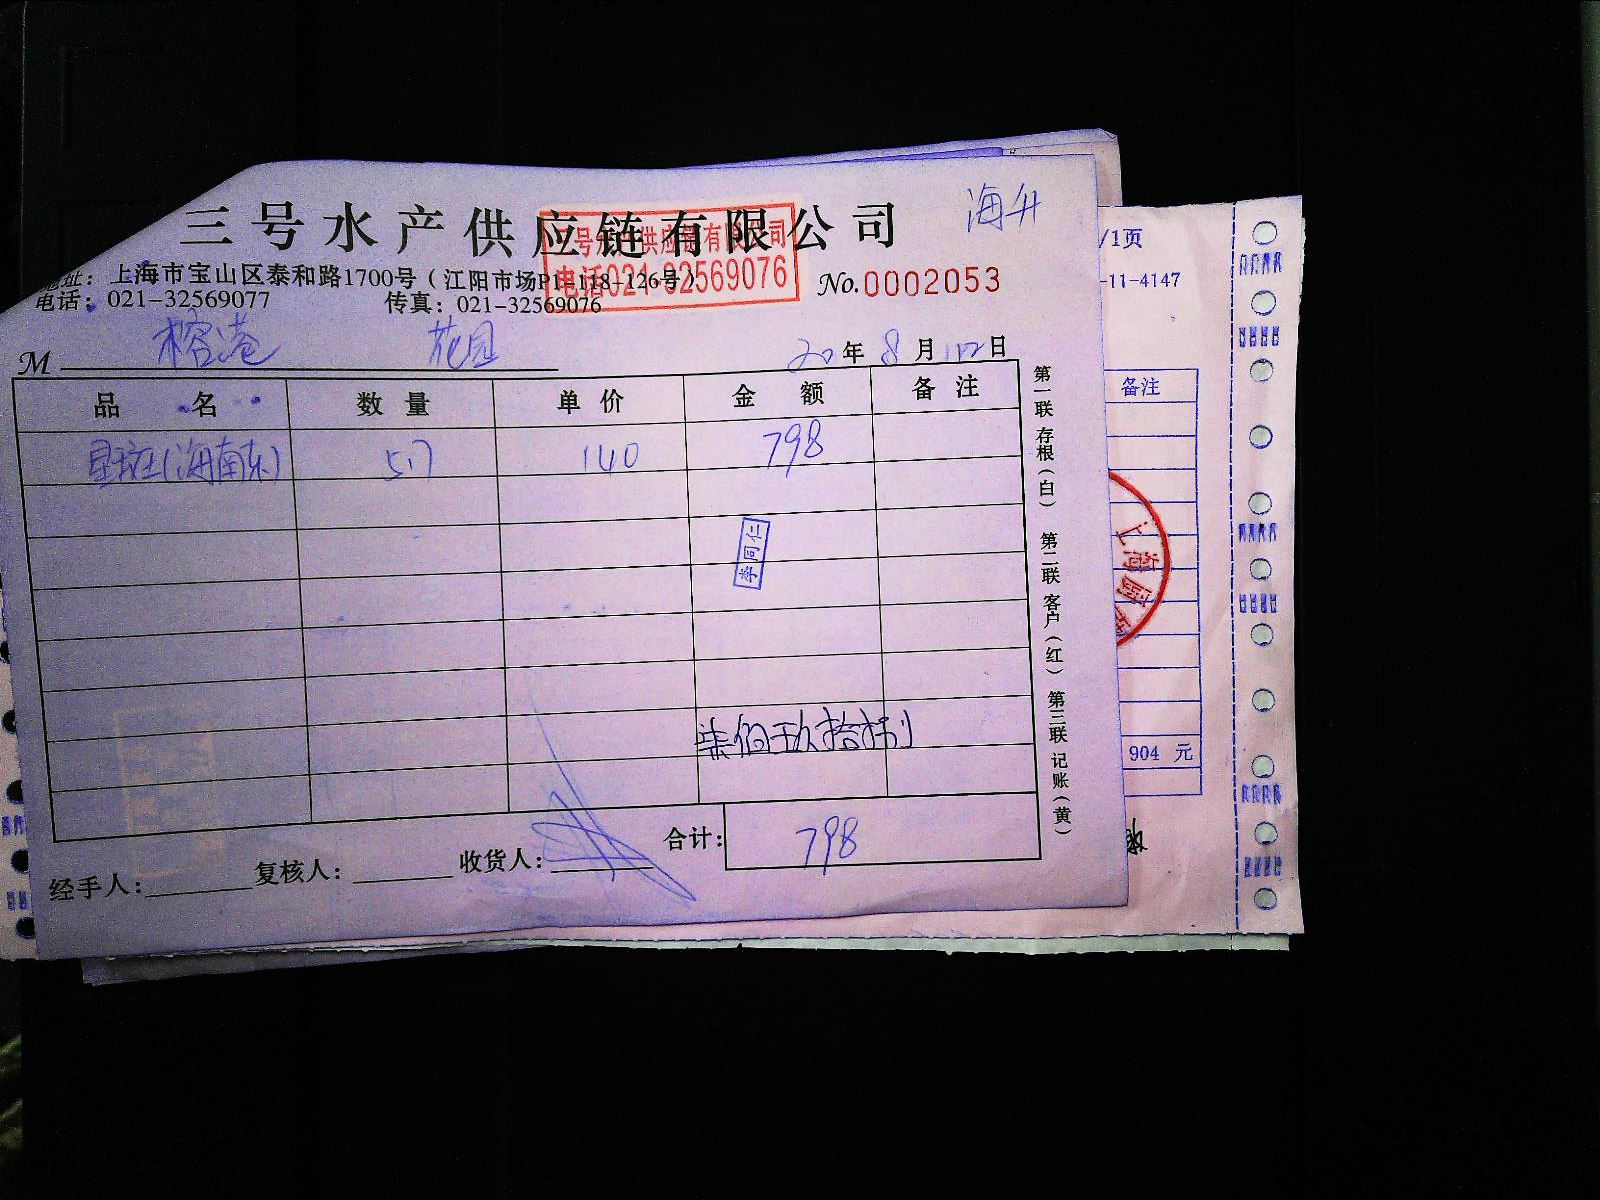 海升
三号水产供应链有限公司
三号水产供应链有限公司
电话021-32569076
地址：上海市宝山区泰和路1700号（江阳市场P1-118-126号）
电话：021-32569077 传真：021-32569076
No.0002053
M 榕港 花园
20年8月 日
品 名 数 量 单 价 金 额 备 注
星斑(海南东) 5.7 140 798
李同仁
柒佰玖拾捌
合计：798
经手人： 复核人： 收货人：
第一联 存根（白） 第二联 客户（红） 第三联 记账（黄）
/1页
-11-4147
备注
上海
904 元